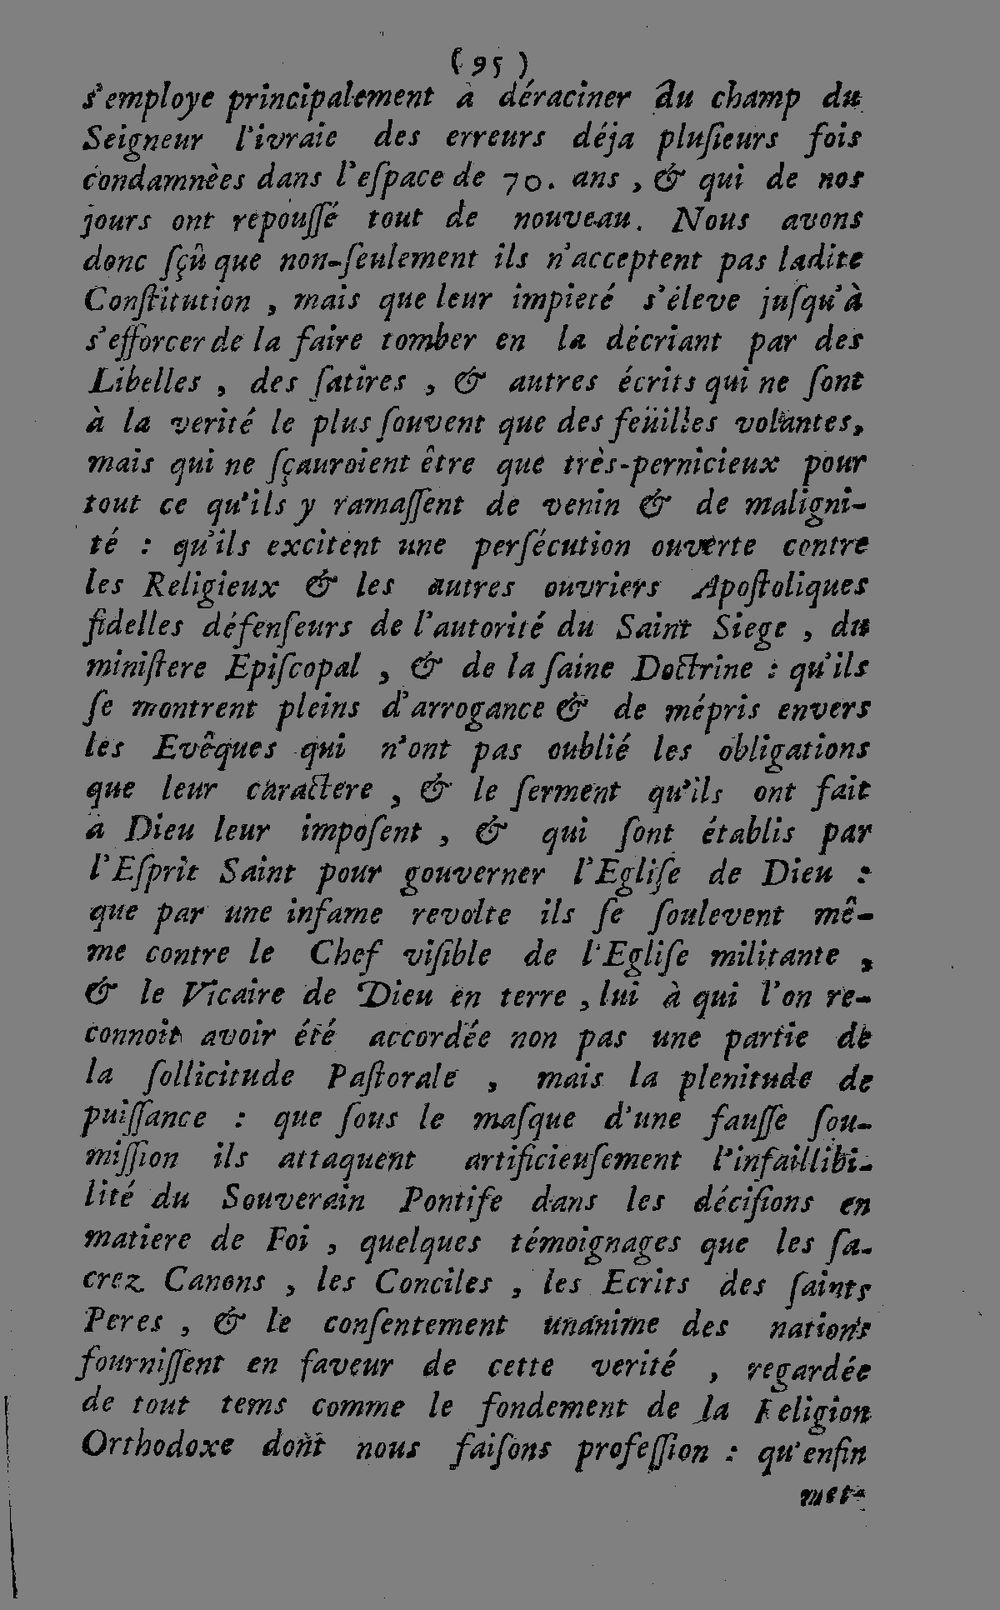 (95)
s'employe principalement à déraciner du champ du
Seigneur l'ivraie des erreurs déja pluſieurs fois
condamnèes dans l'eſpace de 70. ans, & qui de nos
jours ont repouſſé tout de nouveau. Nous avons
donc ſçû que non-ſeulement ils n'acceptent pas ladite
Conſtitution, mais que leur impieté s'éleve juſqu'à
s'efforcer de la faire tomber en la décriant par des
Libelles, des ſatires, & autres écrits qui ne ſont
à la verité le plus ſouvent que des feüilles volantes,
mais qui ne ſçauroient être que très-pernicieux pour
tout ce qu'ils y ramaſſent de venin & de maligni-
té : qu'ils excitent une perſécution ouverte contre
les Religieux & les autres ouvriers Apoſtoliques
fidelles défenſeurs de l'autorité du Saint Siege, du
miniſtere Epiſcopal, & de la ſaine Doctrine : qu'ils
ſe montrent pleins d'arrogance & de mépris envers
les Evêques qui n'ont pas oublié les obligations
que leur caractere, & le ſerment qu'ils ont fait
à Dieu leur impoſent, & qui ſont établis par
l'Eſprit Saint pour gouverner l'Egliſe de Dieu :
que par une infame revolte ils ſe ſoulevent mê-
me contre le Chef viſible de l'Egliſe militante,
& le Vicaire de Dieu en terre, lui à qui l'on re-
connoit avoir été accordée non pas une partie de
la ſollicitude Paſtorale, mais la plenitude de
puiſſance : que ſous le maſque d'une fauſſe ſou-
miſſion ils attaquent artificieuſement l'infaillibi-
lité du Souverain Pontife dans les déciſions en
matiere de Foi, quelques témoignages que les ſa-
crez Canons, les Conciles, les Ecrits des ſaints
Peres, & le conſentement unanime des nations
fourniſſent en faveur de cette verité, regardée
de tout tems comme le fondement de la Religion
Orthodoxe dont nous faiſons profeſſion : qu'enfin
met-